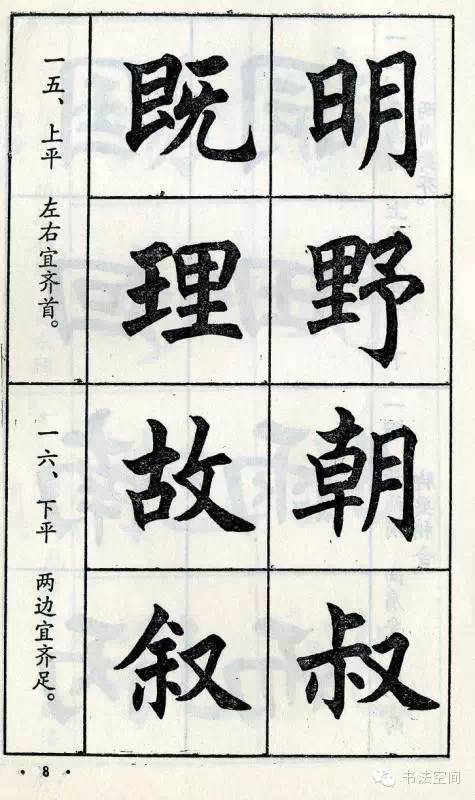 明野朝叔
既理故叙
一五、上平 左右宜齐首。
一六、下平 两边宜齐足。
· 8 ·
书法空间